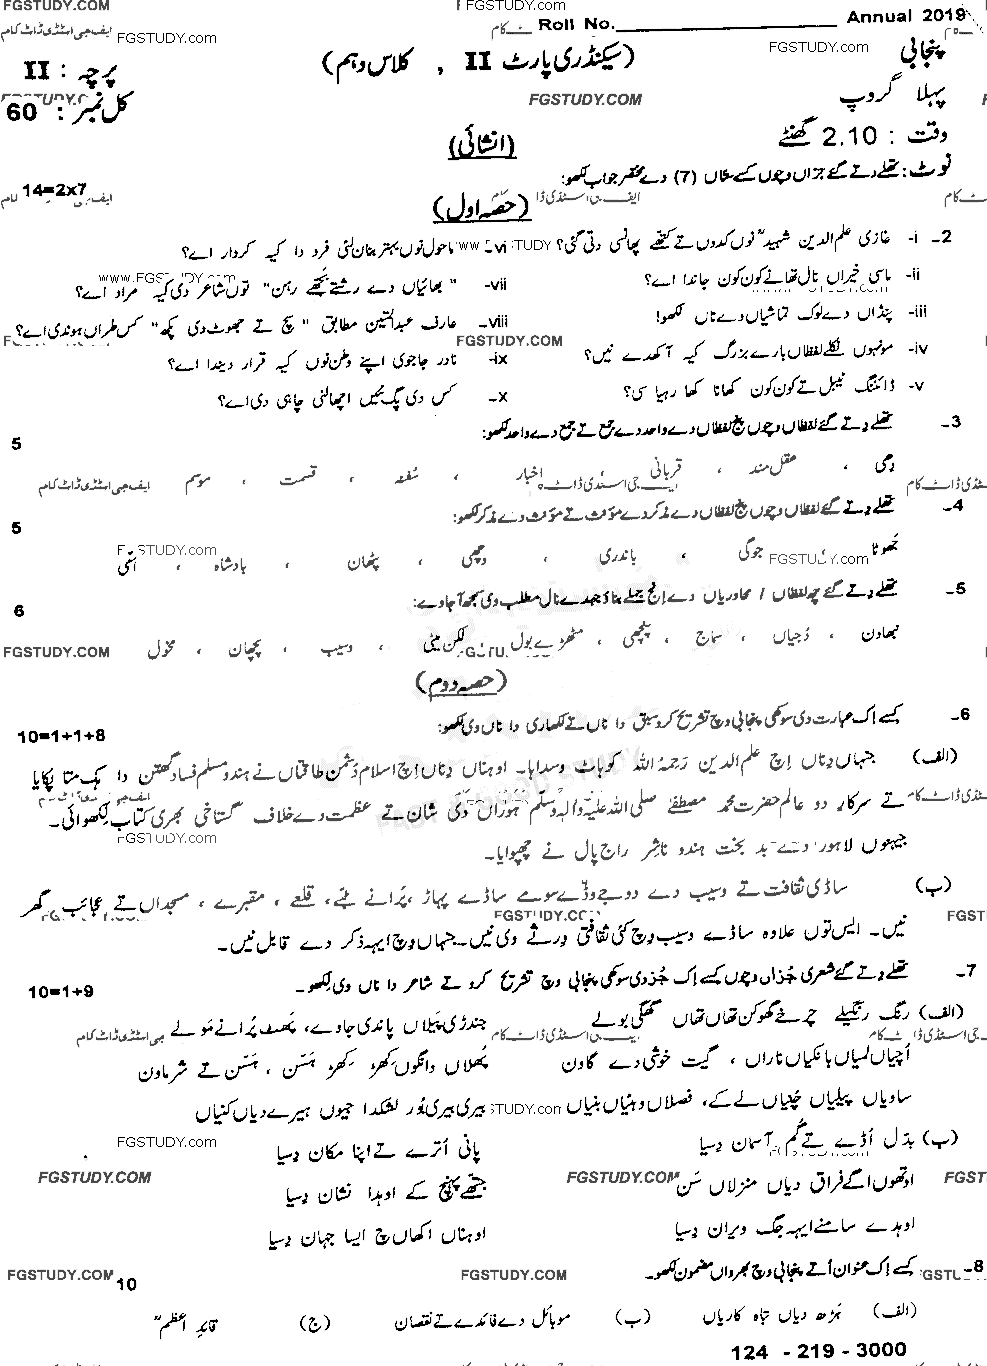 Roll No. Annual 2019
پنجابی (سیکنڈری پارٹ II ، کلاس دہم) پرچہ : II
پہلا گروپ کل نمبر : 60
وقت : 2.10 گھنٹے
(انشائی)
نوٹ : تھلے دتے گئے جزاں وچوں کسے ستاں (7) دے مختصر جواب لکھو: 14=2x7
(حصہ اول)
2- i- غازی علم الدین شہیدؒ نوں کدوں تے کتھے پھانسی دتی گئی؟ vi- ماحول نوں بہتر بنان لئی فرد دا کیہ کردار اے؟
ii- ماسی خیراں نال تھانے کون کون جاندا اے؟ vii- "بھائیاں دے رشتے بجھے رہن" توں شاعر دی کیہ مراد اے؟
iii- پنڈاں دے لوک تماشیاں دے ناں لکھو! viii- عارف عبدالمتین مطابق "سچ تے جھوٹ دی پکھ" کس طراں ہوندی اے؟
iv- مونہوں نکلے لفظاں بارے بزرگ کیہ آکھدے نیں؟ ix- نادر جاجوی اپنے وطن نوں کیہ قرار دیندا اے؟
v- ڈائننگ ٹیبل تے کون کون کھانا کھا رہیا سی؟ x- کس دی پگ نئیں اچھالنی چاہی دی اے؟
3- تھلے دتے گئے لفظاں وچوں پنج لفظاں دے واحد دے جمع تے جمع دے واحد لکھو: 5
دھی ، عقل مند ، قربانی ، اخبار ، شفقہ ، قسمت ، موسم
4- تھلے دتے گئے لفظاں وچوں پنج لفظاں دے مذکر دے مؤنث تے مؤنث دے مذکر لکھو: 5
جھوٹا ، جوگی ، باندری ، وچھی ، پٹھان ، بادشاہ ،
5- تھلے دتے گئے چھ لفظاں / محاوریاں دے انج جملے بناؤ جہدے نال مطلب وی سمجھ آ جاوے: 6
، دُجیاں ، سماج ، پنچھی ، مٹھڑے بول ، لکن میٹی ، وسیب ، پچھان ، مخول
(حصہ دوم)
6- کسے اک عبارت دی سوکھی پنجابی وچ تشریح کرو سبق دا ناں تے لکھاری دا ناں وی لکھو: 10=1+1+8
(الف) جنہاں دِناں اِچ علم الدین رحمۃ اللہ کوہاٹ وسدا ہا۔ اوہناں دِناں اِچ اسلام دُشمن طاقتاں نے ہندو مسلم فساد گھتن دا ہک متا پکایا
تے سرکار دو عالم حضرت محمد مصطفےٰ صلی اللہ علیہ وآلہ وسلم ہوراں دی شان تے عظمت دے خلاف گستاخی بھری کتاب لکھوائی۔
جیہنوں لاہور دے بد بخت ہندو ناشر راج پال نے چھپوایا۔
(ب) ساڈی ثقافت تے وسیب دے دوجے وڈے سومے ساڈے پہاڑ ، پُرانے ٹبے، قلعے ، مقبرے ، مسجداں تے عجائب گھر
نیں۔ ایس توں علاوہ ساڈے وسیب وچ کئی ثقافتی ورثے وی نیں۔ جنہاں وچ ایہہ ذکر دے قابل نیں۔
7- تھلے دتے گئے شعری جُزاں وچوں کسے اِک جُز دی سوکھی پنجابی وچ تشریح کرو تے شاعر دا ناں وی لکھو۔ 10=1+9
(الف) رنگ رنگیلے چرخے گھوکن تھاں تھاں گھگی بولے جندڑی پیلاں پاندی جاوے، پھٹ پُرانے مَولے
اُچیاں لمیاں بانکیاں ناراں ، گیت خوشی دے گاون پُھلاں وانگوں کھڑ کھڑ ہسّن ، ہسّن تے شرماون
ساویاں پیلیاں چُنیاں لے کے، فصلاں وہنیاں بنیاں بیری بیری نُور لشکدا جیوں ہیرے دیاں کنیاں
(ب) بدّل اُڈے تے گُم آسمان دِسیا پانی اُترے تے اپنا مکان دِسیا
اوتھوں اگے فراق دیاں منزلاں سَن جتھے پہنچ کے اوہدا نشان دِسیا
اوہدے سامنے ایہہ جگ ویران دِسیا اوہناں اکھاں چ ایسا جہان دِسیا
8- کسے اِک عنوان اُتے پنجابی وچ بھرواں مضمون لکھو۔ 10
(الف) ہَڑھ دیاں تباہ کاریاں (ب) موبائل دے فائدے تے نقصان (ج) قائد اعظمؒ
124 - 219 - 3000